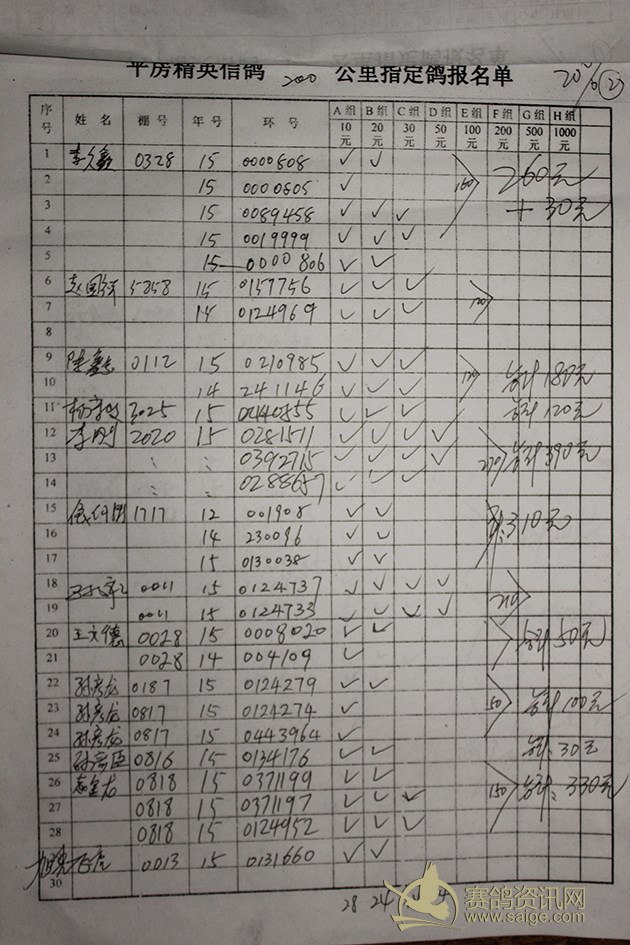 平房精英信鸽 200 公里指定鸽报名单
序号 姓名 棚号 年号 环号 A组 B组 C组 D组 E组 F组 G组 H组
10元 20元 30元 50元 100元 200元 500元 1000元
1 0328 15 0000808 ✓ ✓ 260元
2 15 0000805 ✓ 160
3 15 0089458 ✓ ✓ ✓ +30元
4 15 0019999 ✓ ✓ ✓
5 15 0000806 ✓ ✓
6 5858 15 0157756 ✓ ✓ ✓
7 14 0124969 ✓ ✓ ✓ 120
8
9 0112 15 0210985 ✓ ✓ ✓
10 14 241146 ✓ ✓ ✓ 120 合计180元
11 3025 15 0440855 ✓ ✓ ✓ 合计120元
12 李刚 2020 15 0281511 ✓ ✓ ✓ ✓
13 : : 0392715 ✓ ✓ ✓ ✓ 270 合计390元
14 : : 0288657 ✓ ✓ ✓
15 1717 12 001908 ✓ ✓ 310元
16 14 230096 ✓ ✓
17 15 0130038 ✓ ✓
18 0011 15 0124737 ✓ ✓ ✓ ✓
19 0011 15 0124733 ✓ ✓ ✓ ✓ 210
20 王文德 0028 15 0008020 ✓ ✓ 合计50元
21 0028 14 004109 ✓
22 孙彦龙 0187 15 0124279 ✓ ✓
23 孙彦龙 0817 15 0124274 ✓ 50 合计100元
24 孙彦龙 0817 15 0443964 ✓
25 0816 15 0134176 ✓ ✓ 合计:30元
26 0818 15 0371199 ✓ ✓
27 0818 15 0371197 ✓ ✓ ✓ 150 合计:330元
28 0818 15 0124952 ✓ ✓ ✓
0013 15 0131660 ✓ ✓
30
28 24 4
赛鸽资讯网
www.saige.com